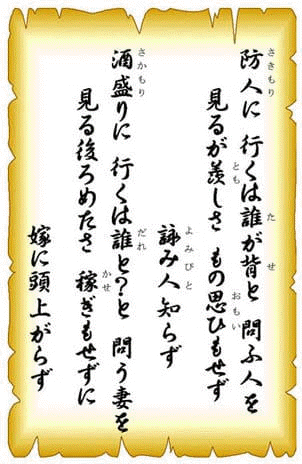 さきもり た せ
防人に 行くは誰が背と 問ふ人を
とも おもい
見るが羨しさ もの思ひもせず
よみびと
詠み人知らず
さかもり だれ
酒盛りに 行くは誰と?と 問う妻を
かせ
見る後ろめたさ 稼ぎもせずに
嫁に頭上がらず